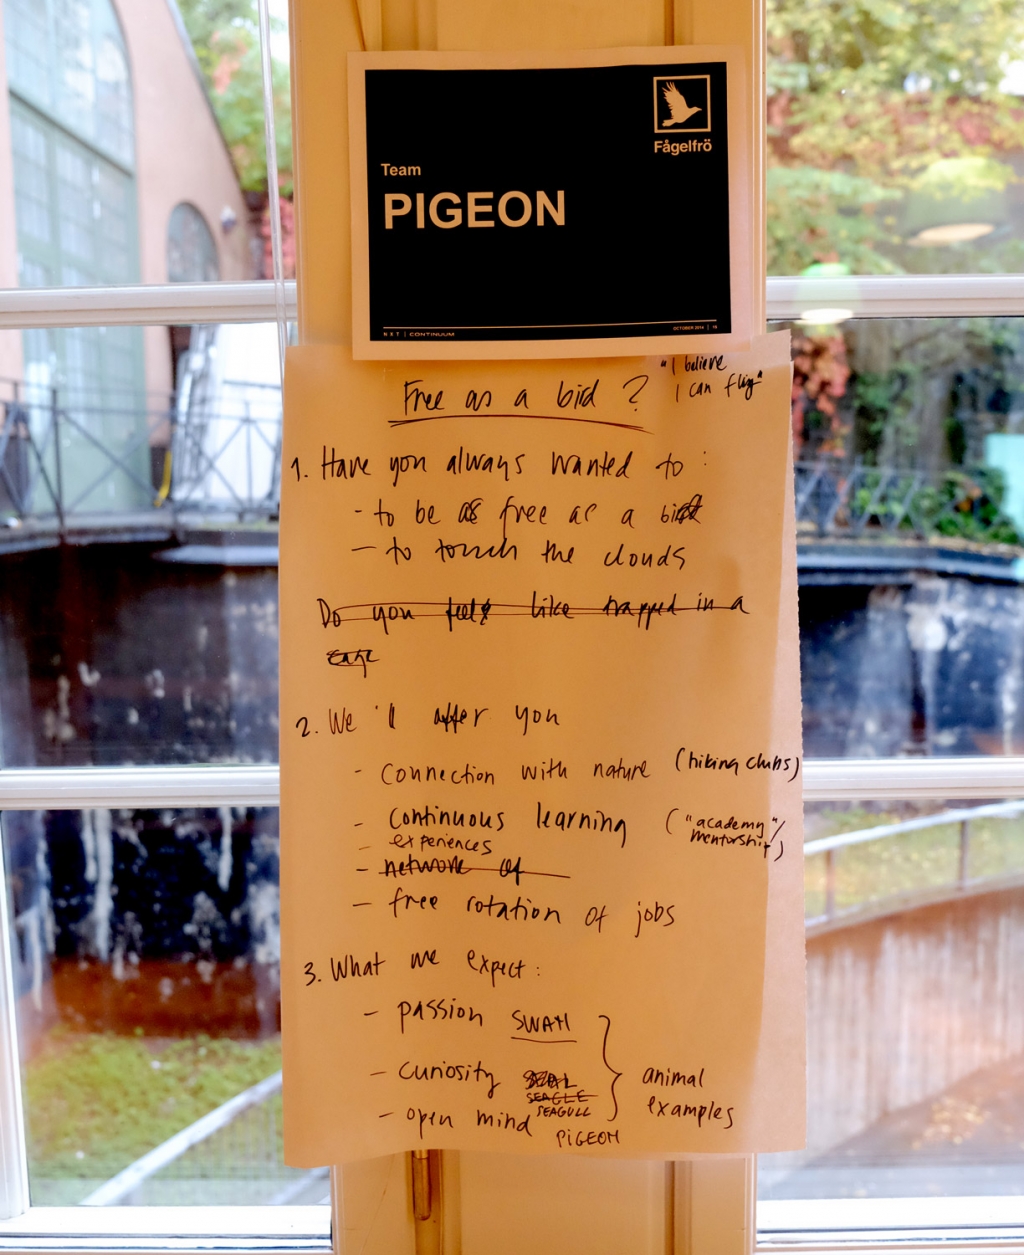 Fågelfrö
Team
PIGEON
NXT | CONTINUUM
OCTOBER 2014 | 16
"I believe
I can fly"
Free as a bird ?
1. Have you always wanted to :
- to be as free as a bird
- to touch the clouds
Do you feel like trapped in a
cage
2. We 'll offer you
- connection with nature (hiking clubs)
- continuous learning ("academy"/
mentorship)
- experiences
- network of
- free rotation of jobs
3. What we expect :
- passion SWAN
- curiosity
SEAGLE
SEAGULL
animal
examples
- open mind PIGEON